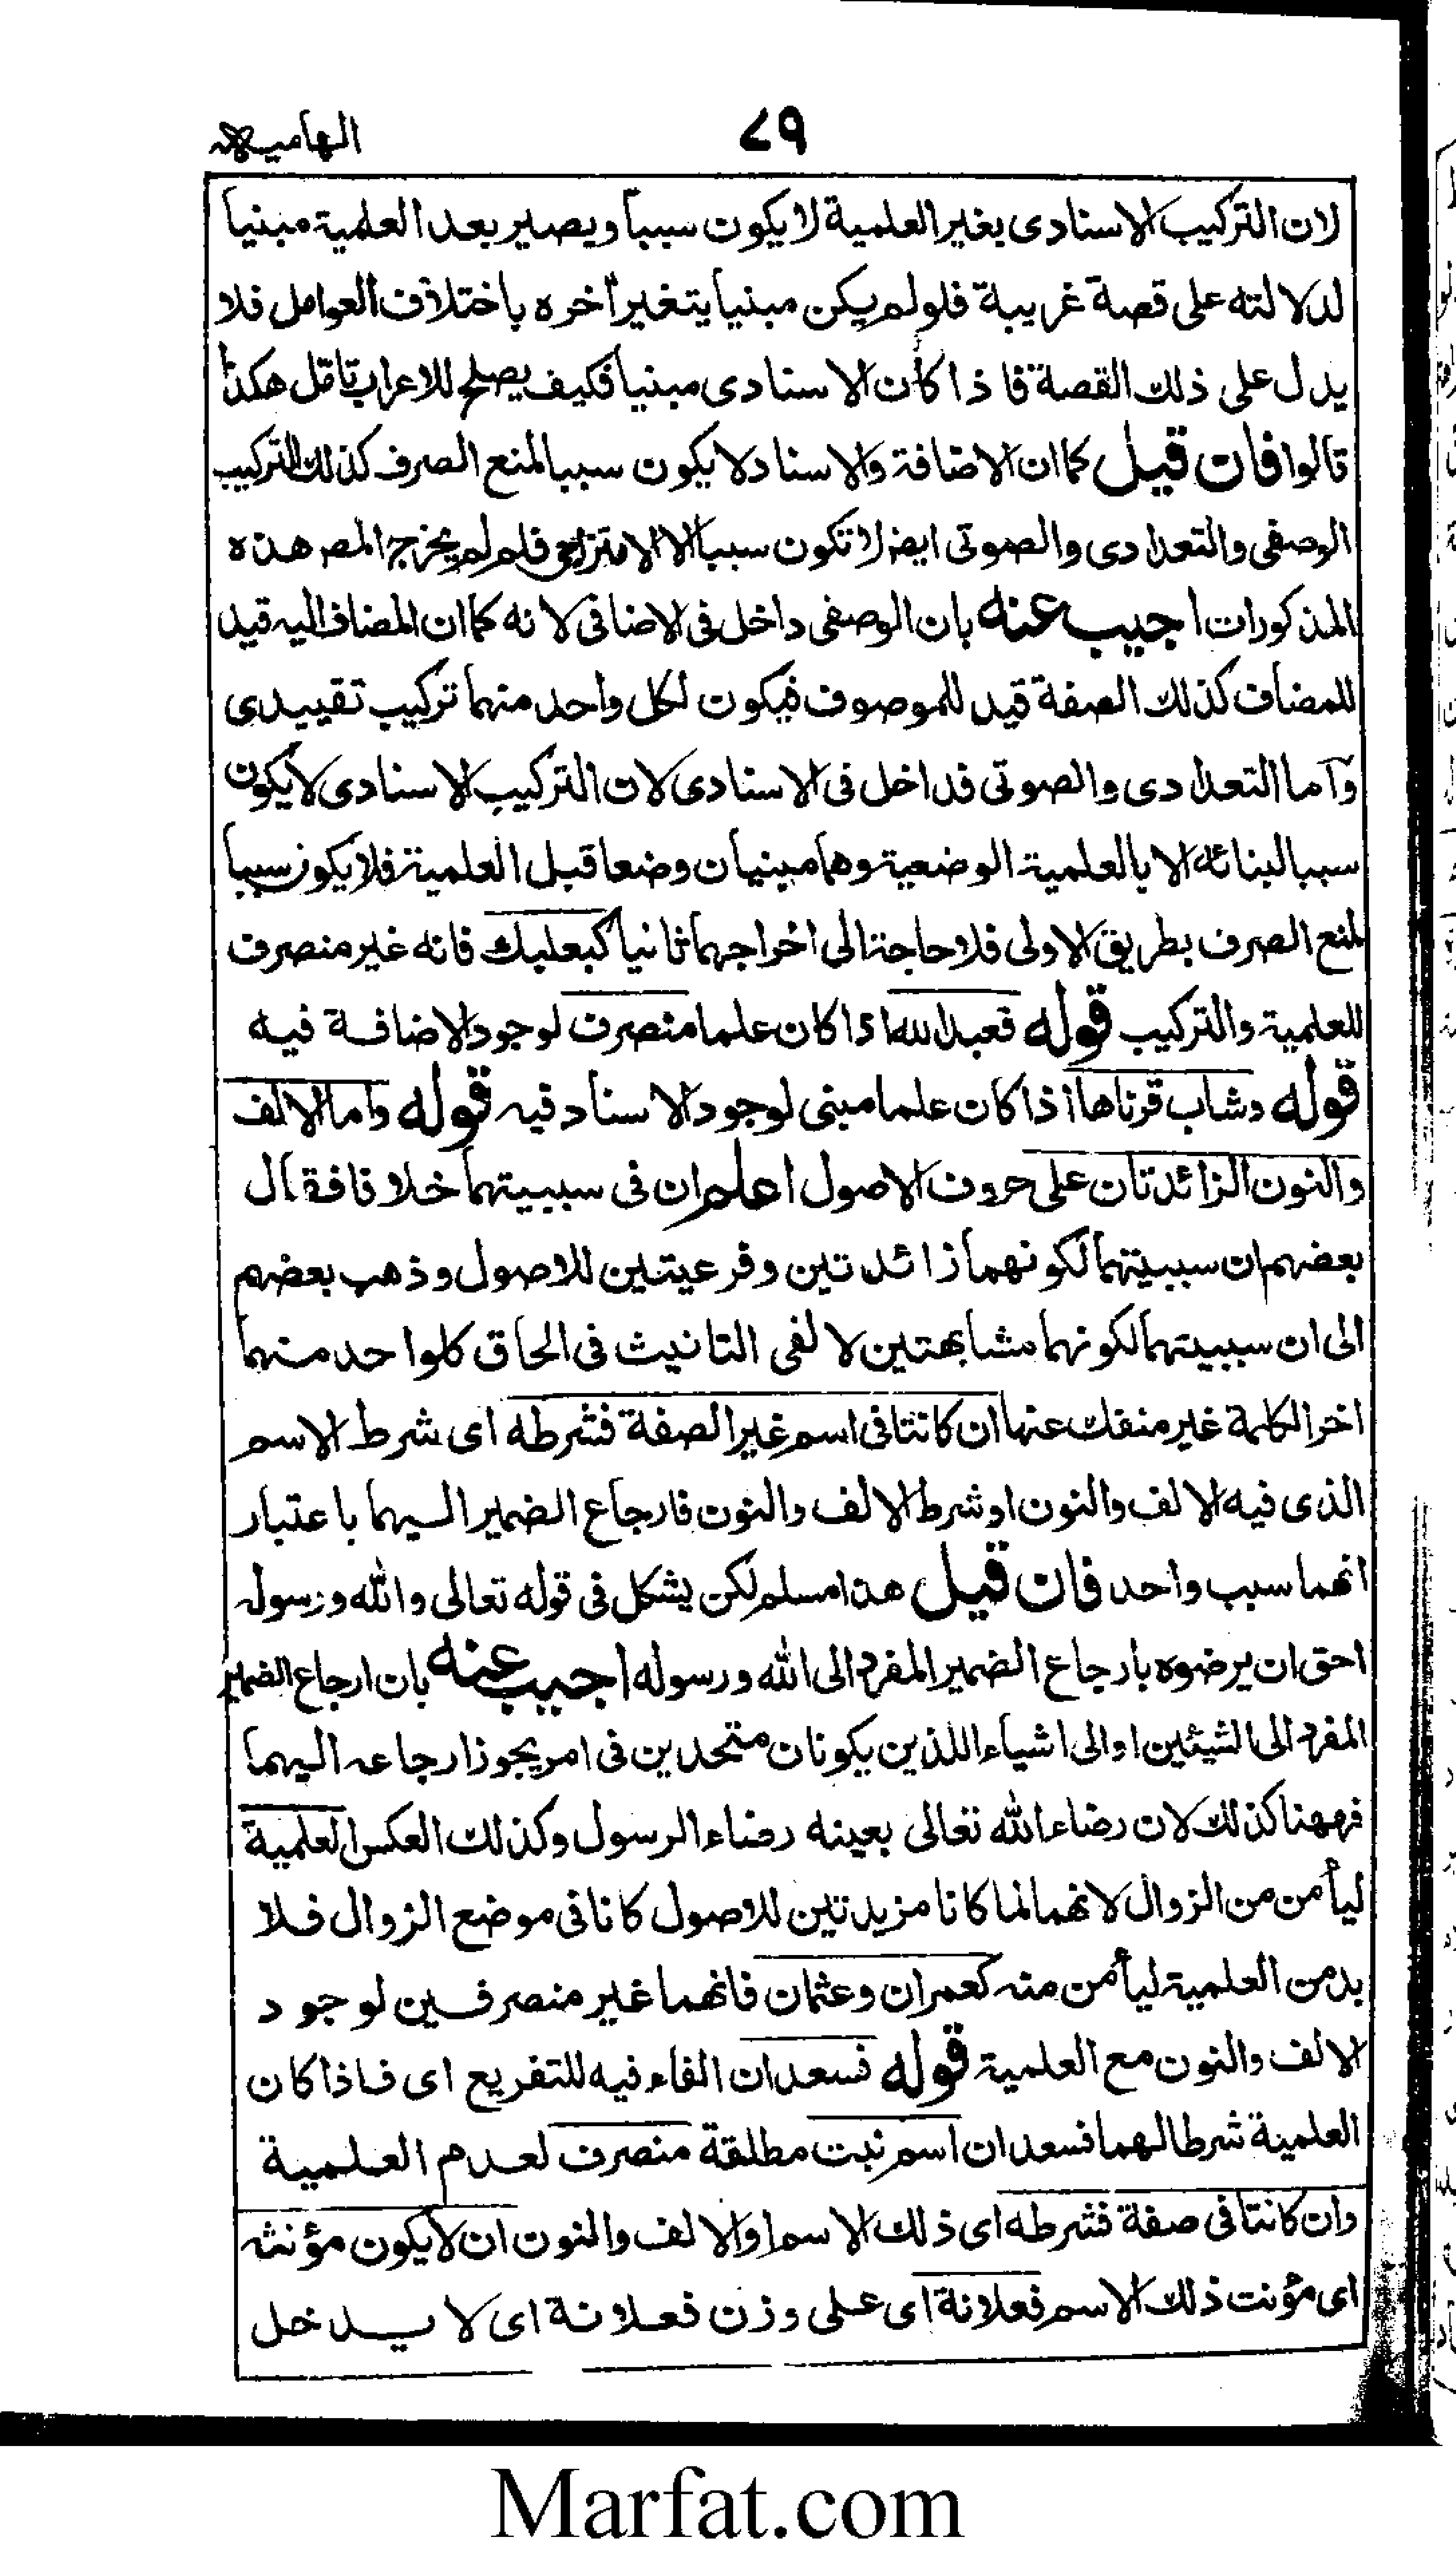 الهامیه
٧٩
لان التركيب الاسنادى بغير العلمية لا يكون سببا ويصير بعد العلمية مبنيا
لدلالته على قصة غريبة فلو لم يكن مبنيا يتغير اخره باختلاف العوامل فلا
يدل على ذلك القصة فاذا كان الاسنادى مبنيا فكيف يصلح للاعراب تامل هكذا
قالوا فان قيل كما ان الاضافة والاسناد لا يكون سببا لمنع الصرف كذلك التركيب
الوصفى والتعدادى والصوتى ايضا لا تكون سببا الا الامتزاجى فلم لم يخرج المصر هذه
المذكورات اجيب عنه بان الوصفى داخل فى الاضافى لانه كما ان المضاف اليه قيد
للمضاف كذلك الصفة قيد للموصوف فيكون لكل واحد منهما تركيب تقييدى
وآما التعدادى والصوتى فداخل فى الاسنادى لان التركيب الاسنادى لا يكون
سببا لبنائه الا بالعلمية الوضعية وهما مبنيان وضعا قبل العلمية فلا يكون سببا
لمنع الصرف بطريق الاولى فلا حاجة الى اخراجهما ثانيا كبعلبك فانه غير منصرف
للعلمية والتركيب قوله فعبد الله اذا كان علما منصرف لوجود الاضافة فيه
قوله وشاب قرناها اذا كان علما مبنى لوجود الاسناد فيه قوله واما الالف
والنون الزائدتان على حروف الاصول اعلم ان فى سببيتهما خلافا فقال
بعضهم ان سببيتهما لكونهما زائدتين وفرعيتين للاصول وذهب بعضهم
الى ان سببيتهما لكونهما مشابهتين لالفى التانيث فى الحاق كلوا حد منهما
اخر الكلمة غير منفك عنها ان كانتا فى اسم غير الصفة فشرطه اى شرط الاسم
الذى فيه الالف والنون او شرط الالف والنون فارجاع الضمير اليهما باعتبار
انهما سبب واحد فان قيل هذا مسلم لكن يشكل فى قوله تعالى والله ورسوله
احق ان يرضوه بارجاع الضمير المفرد الى الله ورسوله اجيب عنه بان ارجاع الضمير
المفرد الى الشيئين او الى اشياء اللذين يكونان متحدين فى امر يجوز ارجاعه اليهما
فههنا كذلك لان رضاء الله تعالى بعينه رضاء الرسول وكذلك العكس العلمية
ليأمن من الزوال لانهما لما كانا مزيدتين للاصول كانا فى موضع الزوال فلا
بد من العلمية ليأمن منه كعمران وعثمان فانهما غير منصرفين لوجود
الالف والنون مع العلمية قوله فسعدان الفاء فيه للتفريع اى فاذا كان
العلمية شرطا لهما فسعدان اسم نبت مطلقة منصرف لعدم العلمية
وان كانتا فى صفة فشرطه اى ذلك الاسم او الالف والنون ان لا يكون مؤنثه
اى مؤنث ذلك الاسم فعلانة اى على وزن فعلانة اى لا يدخل
Marfat.com